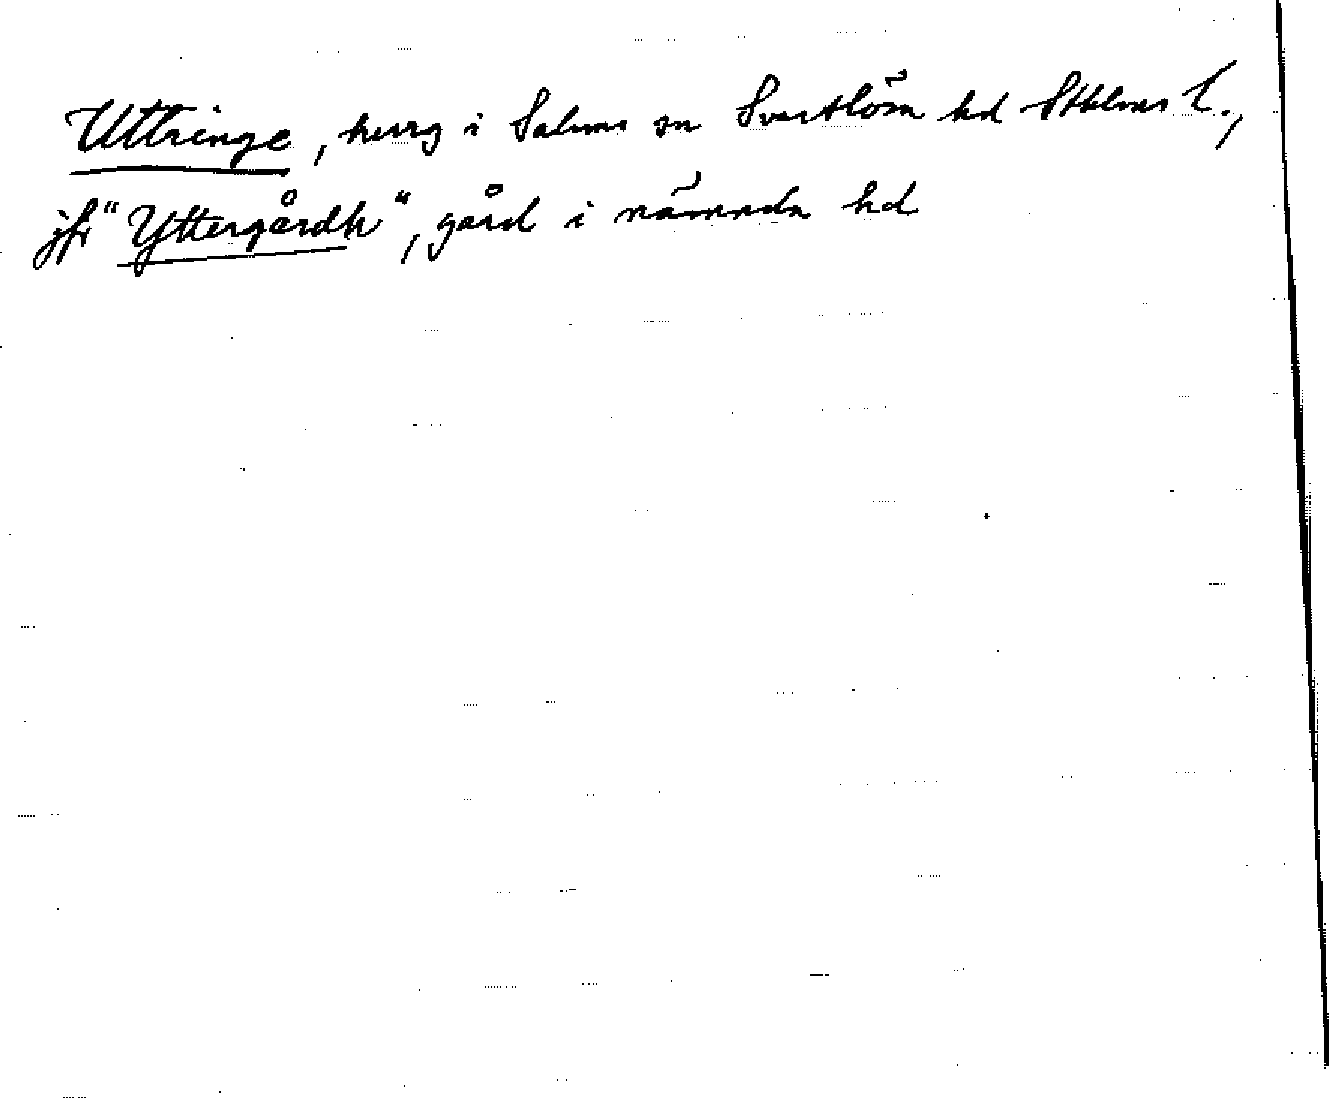 Uttringe, herrg i Salems sn Svartlösa hd Sthlms l.,
jfr "Yttergårdh", gård i nämnda hd